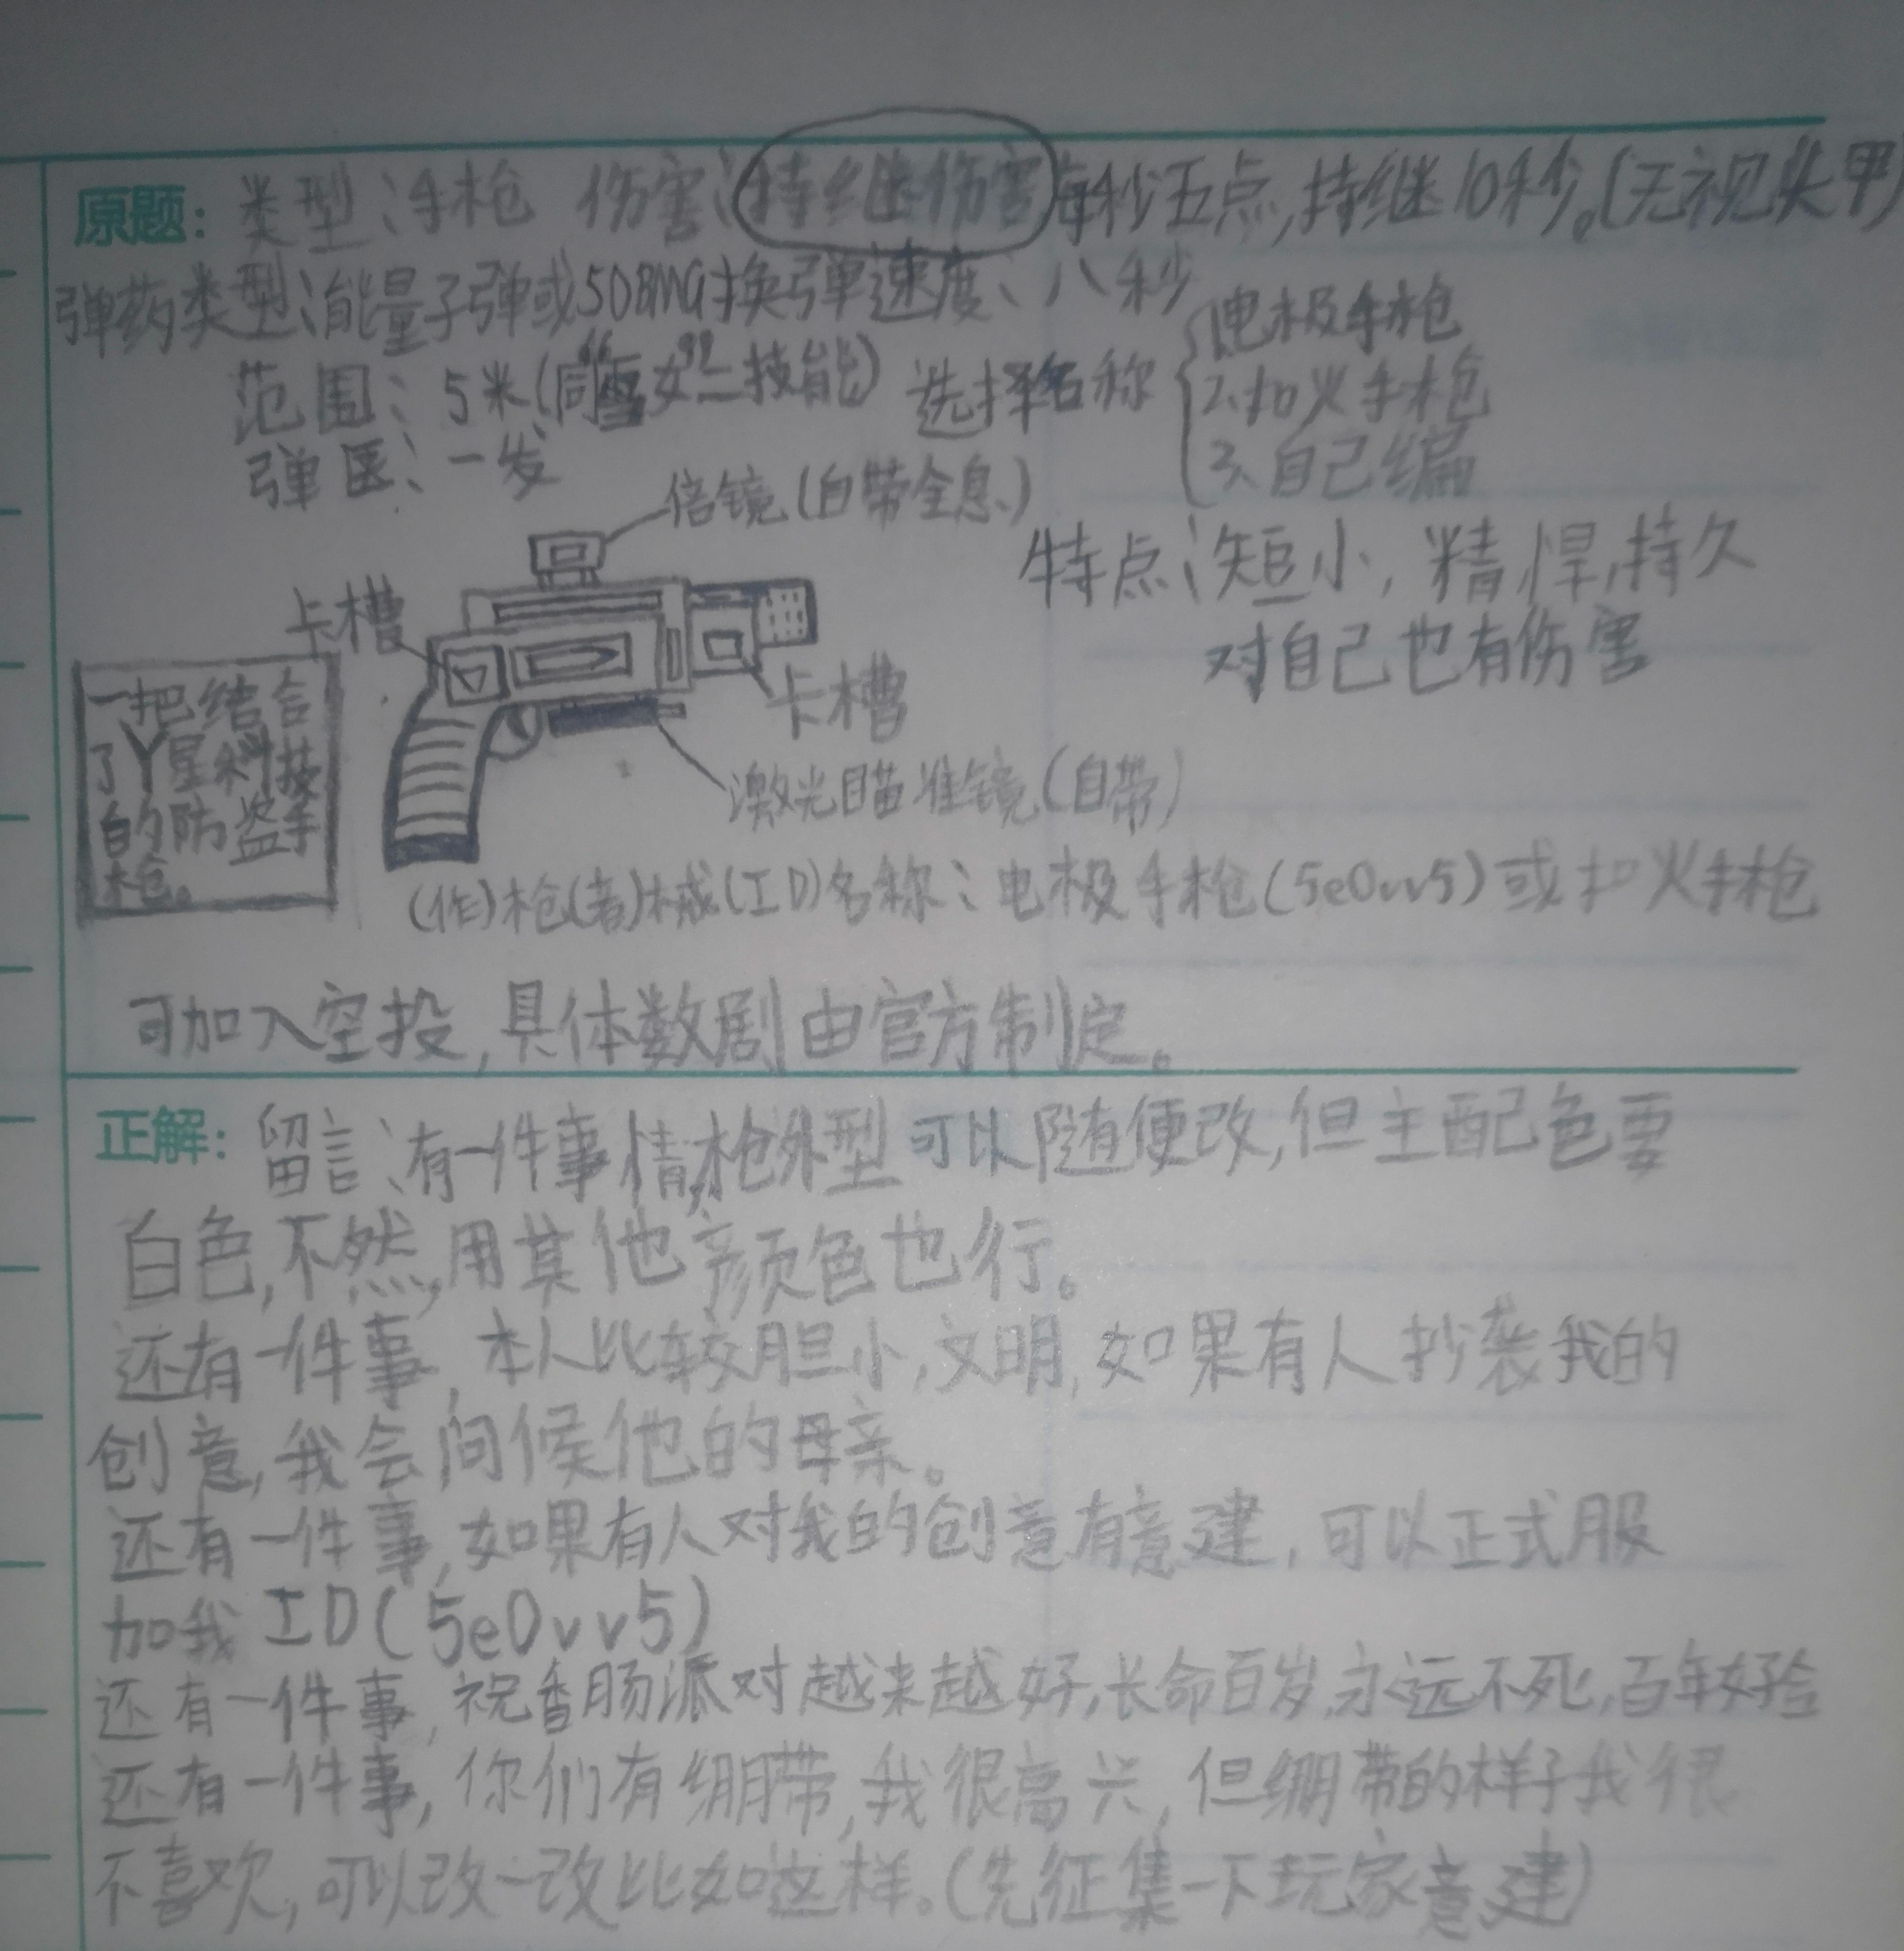 原题：类型：手枪 伤害：持继伤害每秒五点，持继10秒。(无视头甲)
弹药类型：能量子弹或50BMG换弹速度、八秒
范围：5米(同“雪女”二技能) 选择名称
1.电极手枪
2.扣火手枪
3、自己编
弹匣、一发
倍镜(自带全息)
特点：短小，精悍，持久
对自己也有伤害
卡槽
卡槽
一把结合
了Y星科技
的防盗手
枪。
激光瞄准镜(自带)
(作)枪(者)械(ID)名称：电极手枪(5e0vv5)或扣火手枪
可加入空投，具体数剧由官方制定。
正解：留言：有一件事情，枪外型可以随便改，但主配色要
白色，不然，用其他颜色也行。
还有一件事，本人比较胆小，文明，如果有人抄袭我的
创意，我会问候他的母亲。
还有一件事，如果有人对我的创意有意建，可以正式服
加我ID(5e0vv5)
还有一件事，祝香肠派对越来越好，长命百岁，永远不死，百年好合
还有一件事，你们有绷带，我很高兴，但绷带的样子我很
不喜欢，可以改一改比如这样。(先征集一下玩家意建)